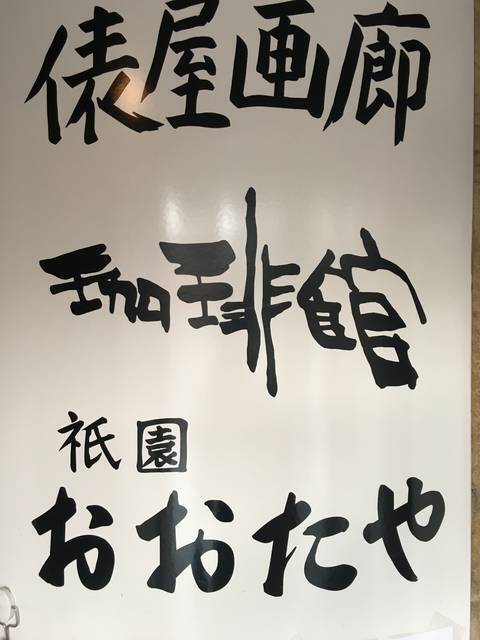 俵屋画廊
珈琲館
祇園
おおたや